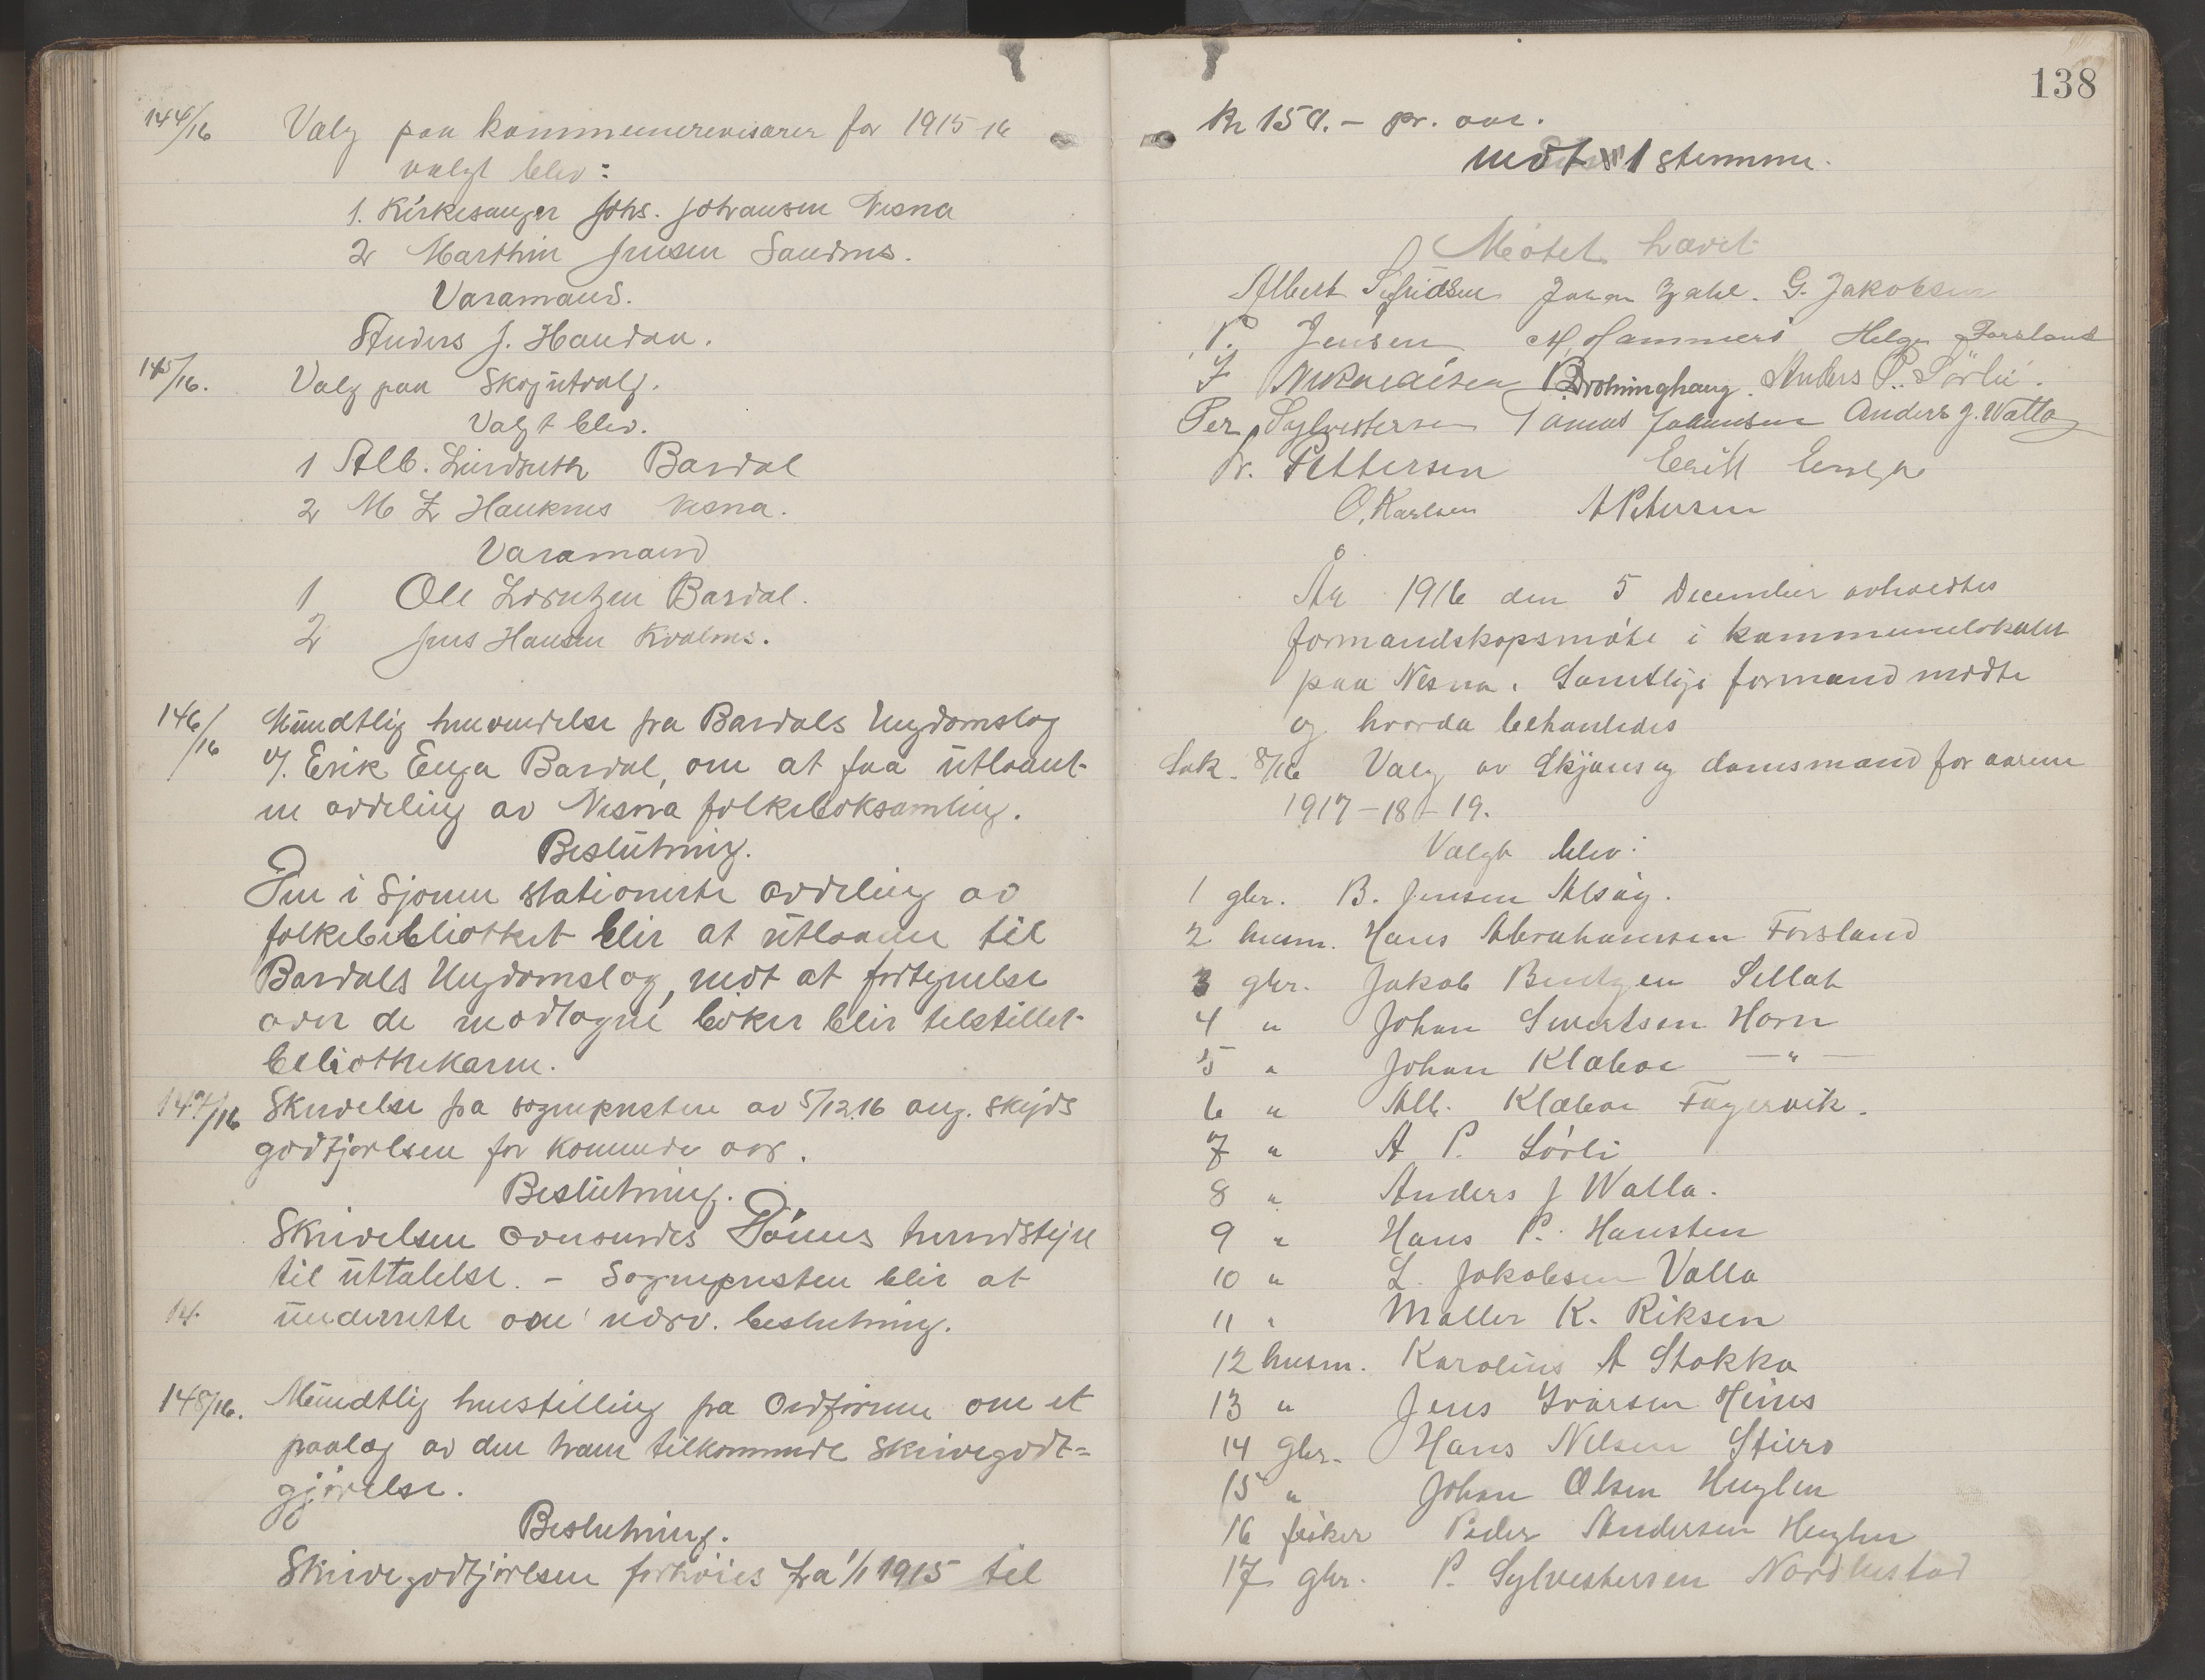 144/16 Valg paa kommunerevisorer for 1915-16
valgt blev:
1. Kirkesanger Johs. Johansen Nesna
2 Marthin Jensen Sandnes.
Varamand.
Anders J. Handan.
145/16. Valg paa Skogutvalg.
Valgt blev.
1 Alb. Lindseth Bardal
2 M Z Hauknes Nesna.
Varamand
1 Ole Lorntzen Bardal.
2 Jens Hansen Kvalnes.
146/16 Mundtlig henvendelse fra Bardals Ungdomslag
v/. Erik Enga Bardal, om at faa utlaant
en avdeling av Nesna folkeboksamling.
Beslutning.
Den i Sjonen stationerte avdeling av
folkebibliotket blir at utlaane til
Bardals Ungdomslag, mot at fortegnelse
over de modtagne böker blir tilstillet
bibliothekaren.
147/16 Skrivelse fra sognepresten av 5/12.16 ang. skyds
godtgjörelsen for kommende aar.
Beslutning.
Skrivelsen oversendes Dönnes herredstyre
til uttalelse. – Sognepresten blir at
14. underrette om nærv. beslutning.
148/16. Mundtlig henstilling fra Ordföreren om et
paalæg av den ham tilkommende skrivegodt=
gjörelse.
Beslutning.
Skrivegodtgjörelsen forhöies fra 1/1 1915 til
138
Kr 150.– pr. aar.
mot 1 stemme.
Mötet hævet
Albert Sefridsen Johan Zahl. G. Jakobsen
P. Jensen M, Hammerö Helge Forsland
F Nikolaisen P. Dronninghaug. Anders P. Sörli.
Per Sylvestersen Tomas Johansen Anders J. Walla
Pettersen Erik Enga
O. Karlsen A Petersen
År 1916 den 5 December avholdtes
formandskapsmöte i kommunelokalet
paa Nesna. Samtlige formænd mödte
og hvorda behandledes
Sak. 8/16 Valg av Skjöns og domsmænd for aarene
1917–18–19.
Valgt blev:
1 gbr. B. Jensen Alsöy.
2 husm. Hans Abrahamsen Forsland
3 gbr. Jakob Bentzen Sellæt
4 " Johan Sivertsen Horn
5 " Johan Klæboe —"—
6 " Alb. Klæboe Fagervik.
7 " A P. Sörli
8 " Anders J Walla.
9 " Hans P. Hansten
10 " L. Jakobsen Valla
11 " Möller K. Riksen
12 husm. Karolius A Stokka
13 " Jens Ivarsen Heines
14 gbr. Hans Nilsen Stiero
15 " Johan Olsen Huglen
16 fisker Peder Andersen Huglen
17 gbr. P. Sylvestersen Nordhestad